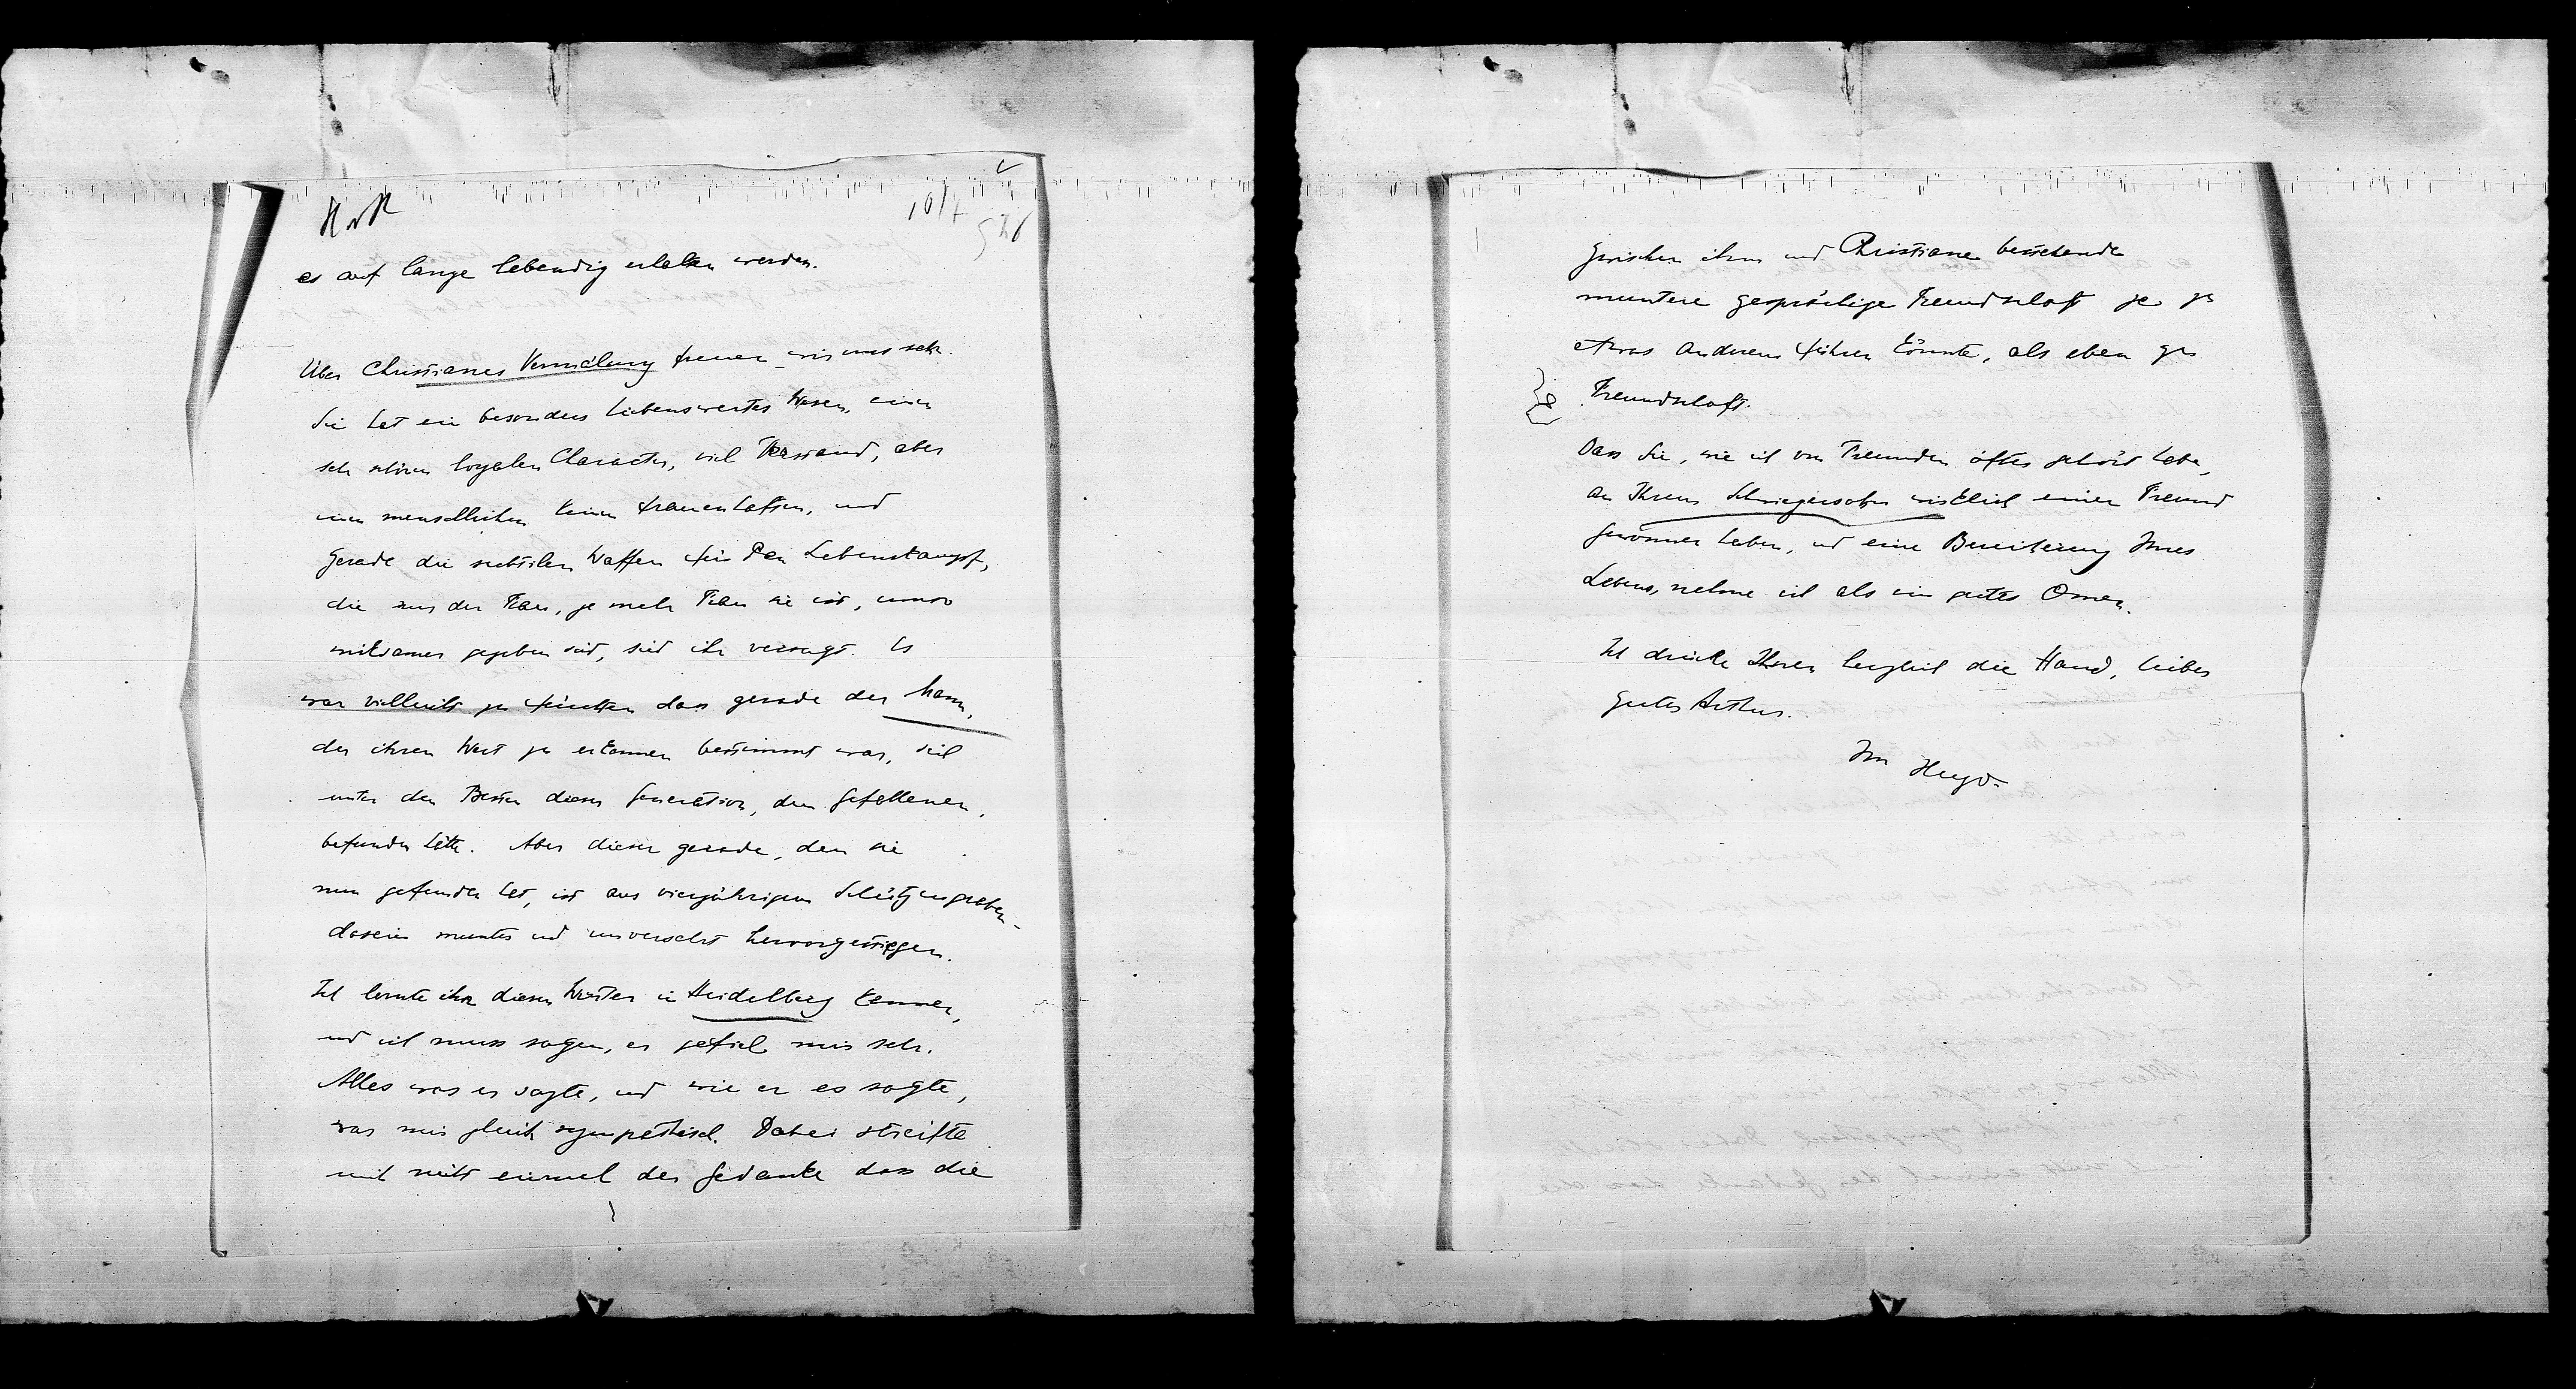 HvH
10/7
es auf lange lebendig erhalten werden.
Über Christianes Vermälung freuen wir uns sehr.
Sie hat ein besonders liebenswertes Wesen, einen
sehr schönen loyalen Character, viel Verstand, aber
einen menschlichen keinen frauenhaften, und
gerade die subtilen Waffen für den Lebenskampf,
die nur der Frau, je mehr Frau sie ist, umso
wirksamer gegeben sind, sind ihr versagt. Es
war vielleicht zu fürchten dass gerade der Mann,
der ihren Wert zu erkennen bestimmt war, sich
unter den Besten dieser Generation, den Gefallenen,
befunden hätte. Aber dieser gerade, den sie
nun gefunden hat, ist aus vierjährigem Schützengraben-
dasein munter und unversehrt hervorgestiegen.
Ich lernte ihn diesen Winter in Heidelberg kennen,
und ich muss sagen, er gefiel mir sehr.
Alles was er sagte, und wie er es sagte,
war mir gleich sympathisch. Dabei streifte
mich nicht einmal der Gedanke dass die
zwischen ihm und Christiane bestehende
muntere gesprächige Freundschaft je zu
etwas anderem führen könnte, als eben zu
Freundschaft.
Dass Sie, wie ich von Freunden öfter gehört habe,
an Ihrem Schwiegersohn wirklich einen Freund
gewonnen haben, und eine Bereicherung Ihres
Lebens, nehme ich als ein gutes Omen.
Ich drücke Ihnen herzlich die Hand, lieber
guter Arthur.
Ihr Hugo.